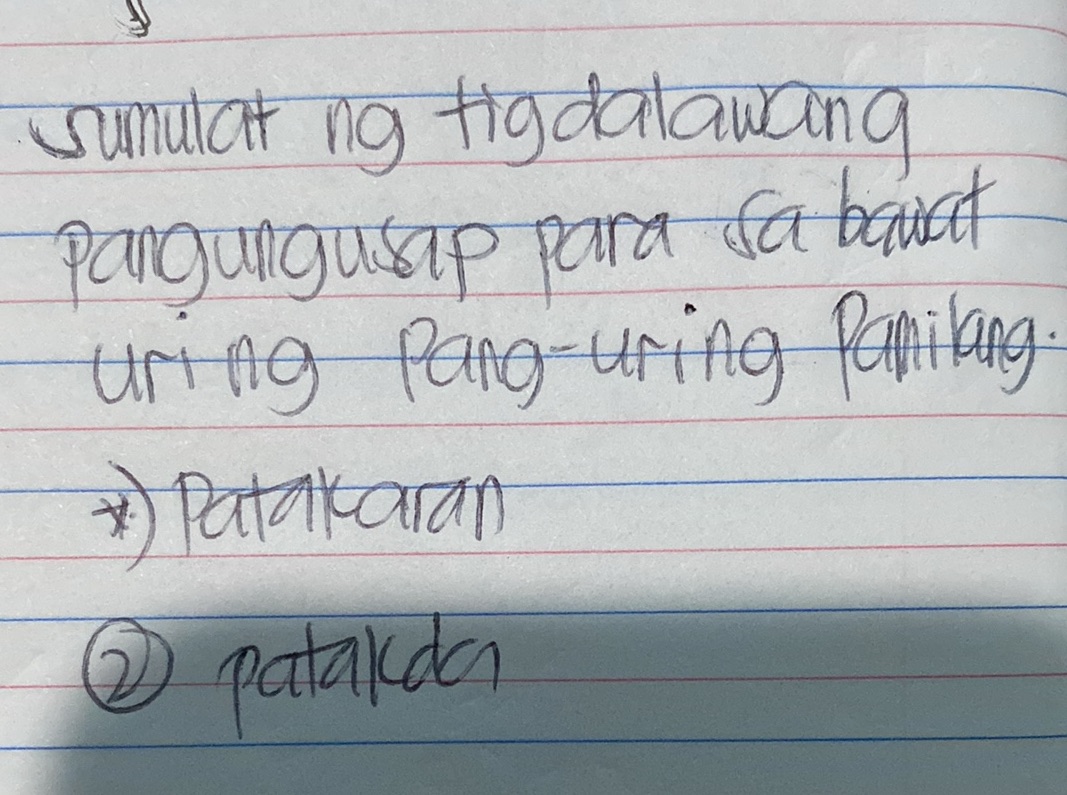 sumulat ng tigdalawang
pangungusap para sa bawat
uri ng Pang-uring Pamilang.
*) Patakaran
② patakda